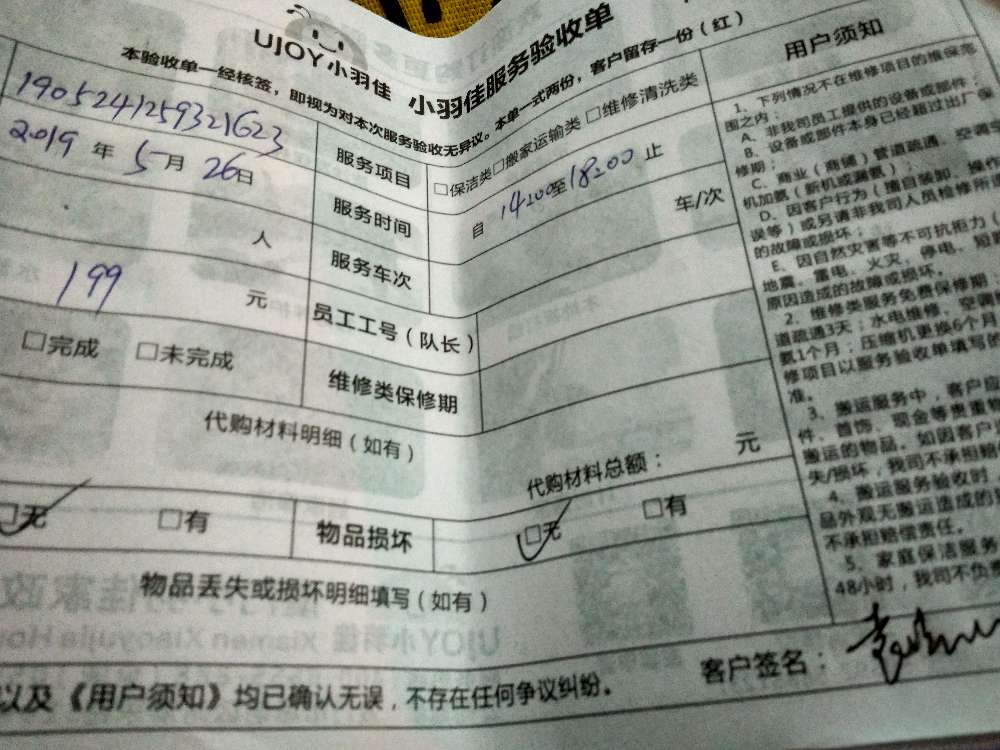 UJOY小羽佳 小羽佳服务验收单
本验收单一经核签，即视为对本次服务验收无异议。本单一式两份，客户留存一份（红）
19052412593211623 服务项目 □保洁类□搬家运输类□维修清洗类
2019年5月26日 服务时间 自14:00至18:00止
人 服务车次 车/次
199元 员工工号（队长）
□完成 □未完成 维修类保修期
代购材料明细（如有） 代购材料总额： 元
□无 □有 物品损坏 □无 □有
物品丢失或损坏明细填写（如有）
以及《用户须知》均已确认无误，不存在任何争议纠纷。 客户签名：
用户须知
1、下列情况不在维修项目的维保范
围之内：
A、非我司员工提供的设备或部件；
B、设备或部件本身已经超过出厂保
修期；
C、商业（商铺）管道疏通、空调
机加氨（新机或漏氨）、
D、因客户行为（擅自装卸、操作
误等）或另请非我司人员检修所
的故障或损坏；
E、因自然灾害等不可抗拒力（
地震、雷电、火灾、停电、短
原因造成的故障或损坏。
2、维修类服务免费保修期：
道疏通3天；水电维修、空调
氨1个月；压缩机更换6个月
修项目以服务验收单填写的
准。
3、搬运服务中，客户应
件、首饰、现金等贵重物
搬运的物品。如因客户
失/损坏，我司不承担赔
4、搬运服务验收时，
品外观无搬运造成的
不承担赔偿责任。
5、家庭保洁服务
48小时，我司不负责